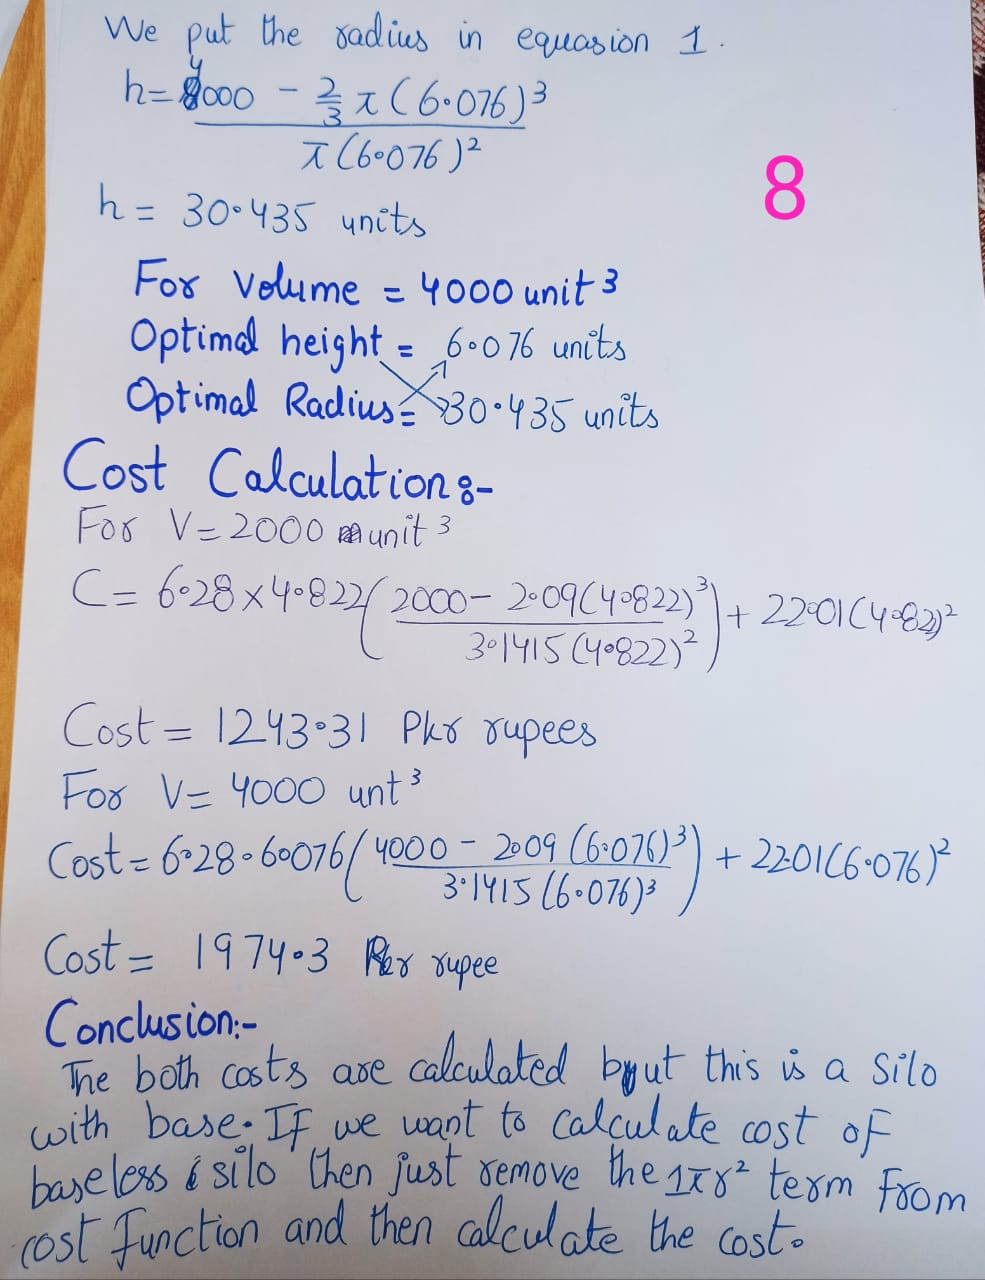 We put the radius in equasion 1.
h= 4000 - 2/3 π (6.076)³
π (6.076)²
8
h = 30.435 units
For Volume = 4000 unit³
Optimal height = 6.076 units
Optimal Radius = 30.435 units
Cost Calculation:-
For V= 2000 unit³
C= 6.28 x 4.822 ( 2000 - 2.09(4.822)³ ) + 22.01(4.82)²
3.1415 (4.822)²
Cost = 1243.31 Pkr rupees
For V= 4000 unt³
Cost = 6.28.6.076 ( 4000 - 2.09 (6.076)³ ) + 22.01(6.076)²
3.1415 (6.076)³
Cost = 1974.3 Pkr rupee
Conclusion:-
The both costs are calculated but this is a Silo
with base. If we want to calculate cost of
baseless silo then just remove the 1πr² term from
cost function and then calculate the cost.